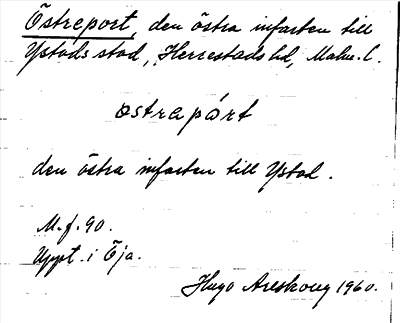 Östreport, den östra infarten till
Ystads stad, Herrestads hd, Malm. l.
östrapórt
den östra infarten till Ystad.
M.f. 90.
Uppt. i Öja.
Hugo Areskoug 1960.